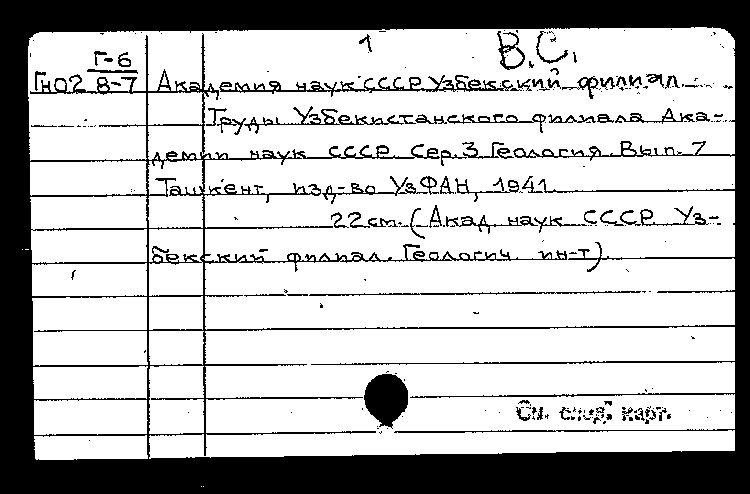 1 В.С.
Г-6
ГнО2 8-7 Академия наук СССР Узбекский филиал.
Труды Узбекистанского филиала Ака-
демии наук СССР. Сер.3 Геология. Вып. 7
Ташкент, изд-во УзФАН, 1941.
22 см. (Акад. наук СССР. Уз-
бекский филиал. Геологич. ин-т).
См. след. карт.